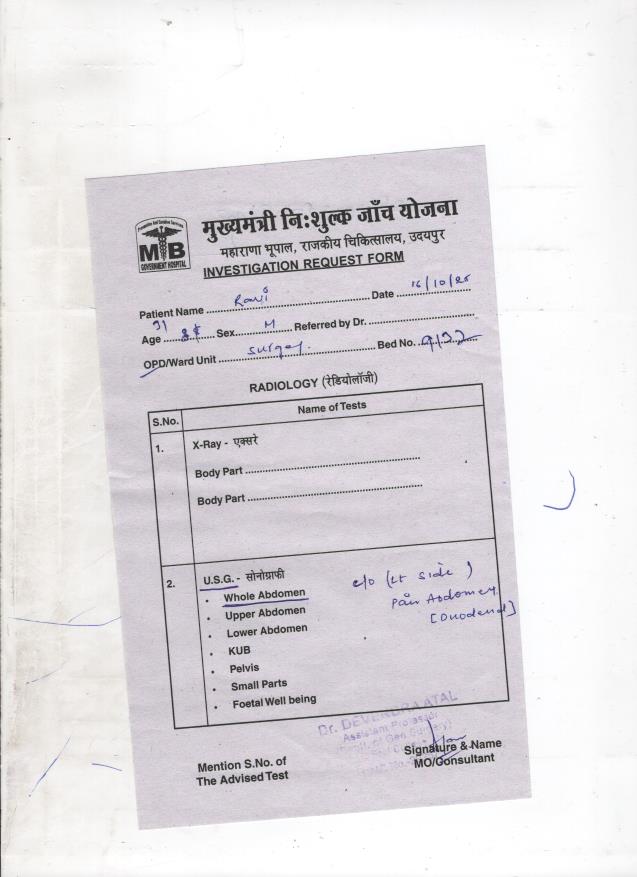 मुख्यमंत्री निःशुल्क जाँच योजना
महाराणा भूपाल, राजकीय चिकित्सालय, उदयपुर
MB
GOVERNMENT HOSPITAL
INVESTIGATION REQUEST FORM
Patient Name Ravi Date 16/10/25
Age 31 Sex M Referred by Dr.
OPD/Ward Unit Surgery Bed No. 9132
RADIOLOGY (रेडियोलॉजी)
S.No. Name of Tests
1. X-Ray - एक्सरे
Body Part
Body Part
2. U.S.G. - सोनोग्राफी
• Whole Abdomen
• Upper Abdomen
• Lower Abdomen
• KUB
• Pelvis
• Small Parts
• Foetal Well being
c/o (Lt side)
Pain Abdomen
Dr. DEVENDRA ATAL
Assistant Professor
Mention S.No. of
The Advised Test
Signature & Name
MO/Consultant